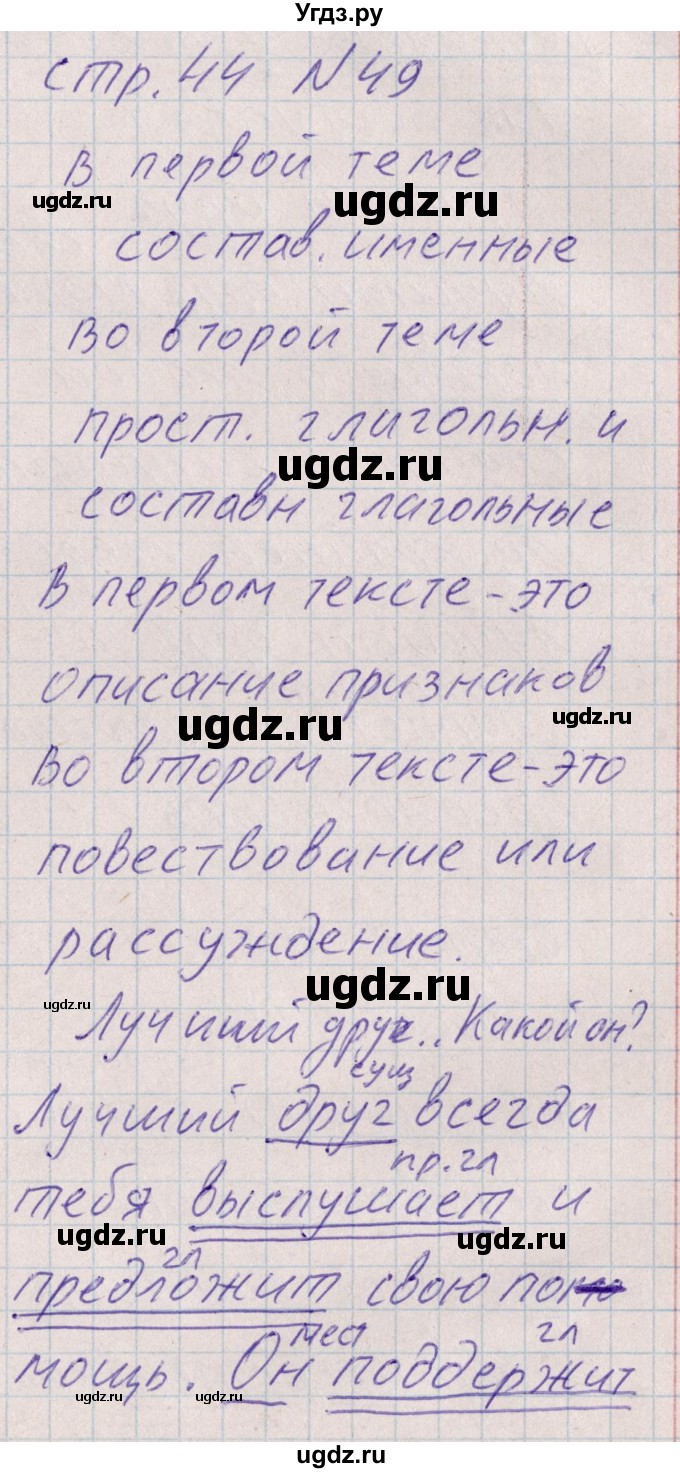 Угдз.ру
стр. 44 N 49
В первой теме
состав. именные
Во второй теме
прост. глагольн. и
составн глагольные
В первом тексте - это
описание признаков
Во втором тексте - это
повествование или
рассуждение.
Лучший друг.. Какой он?
сущ
Лучший друг всегда
пр. гл
тебя выслушает и
гл
предложит свою по
мест гл
мощь. Он поддержит
ugdz.ru
ugdz.ru
ugdz.ru
ugdz.ru
ugdz.ru
ugdz.ru
ugdz.ru
ugdz.ru
ugdz.ru
ugdz.ru
ugdz.ru
ugdz.ru
ugdz.ru